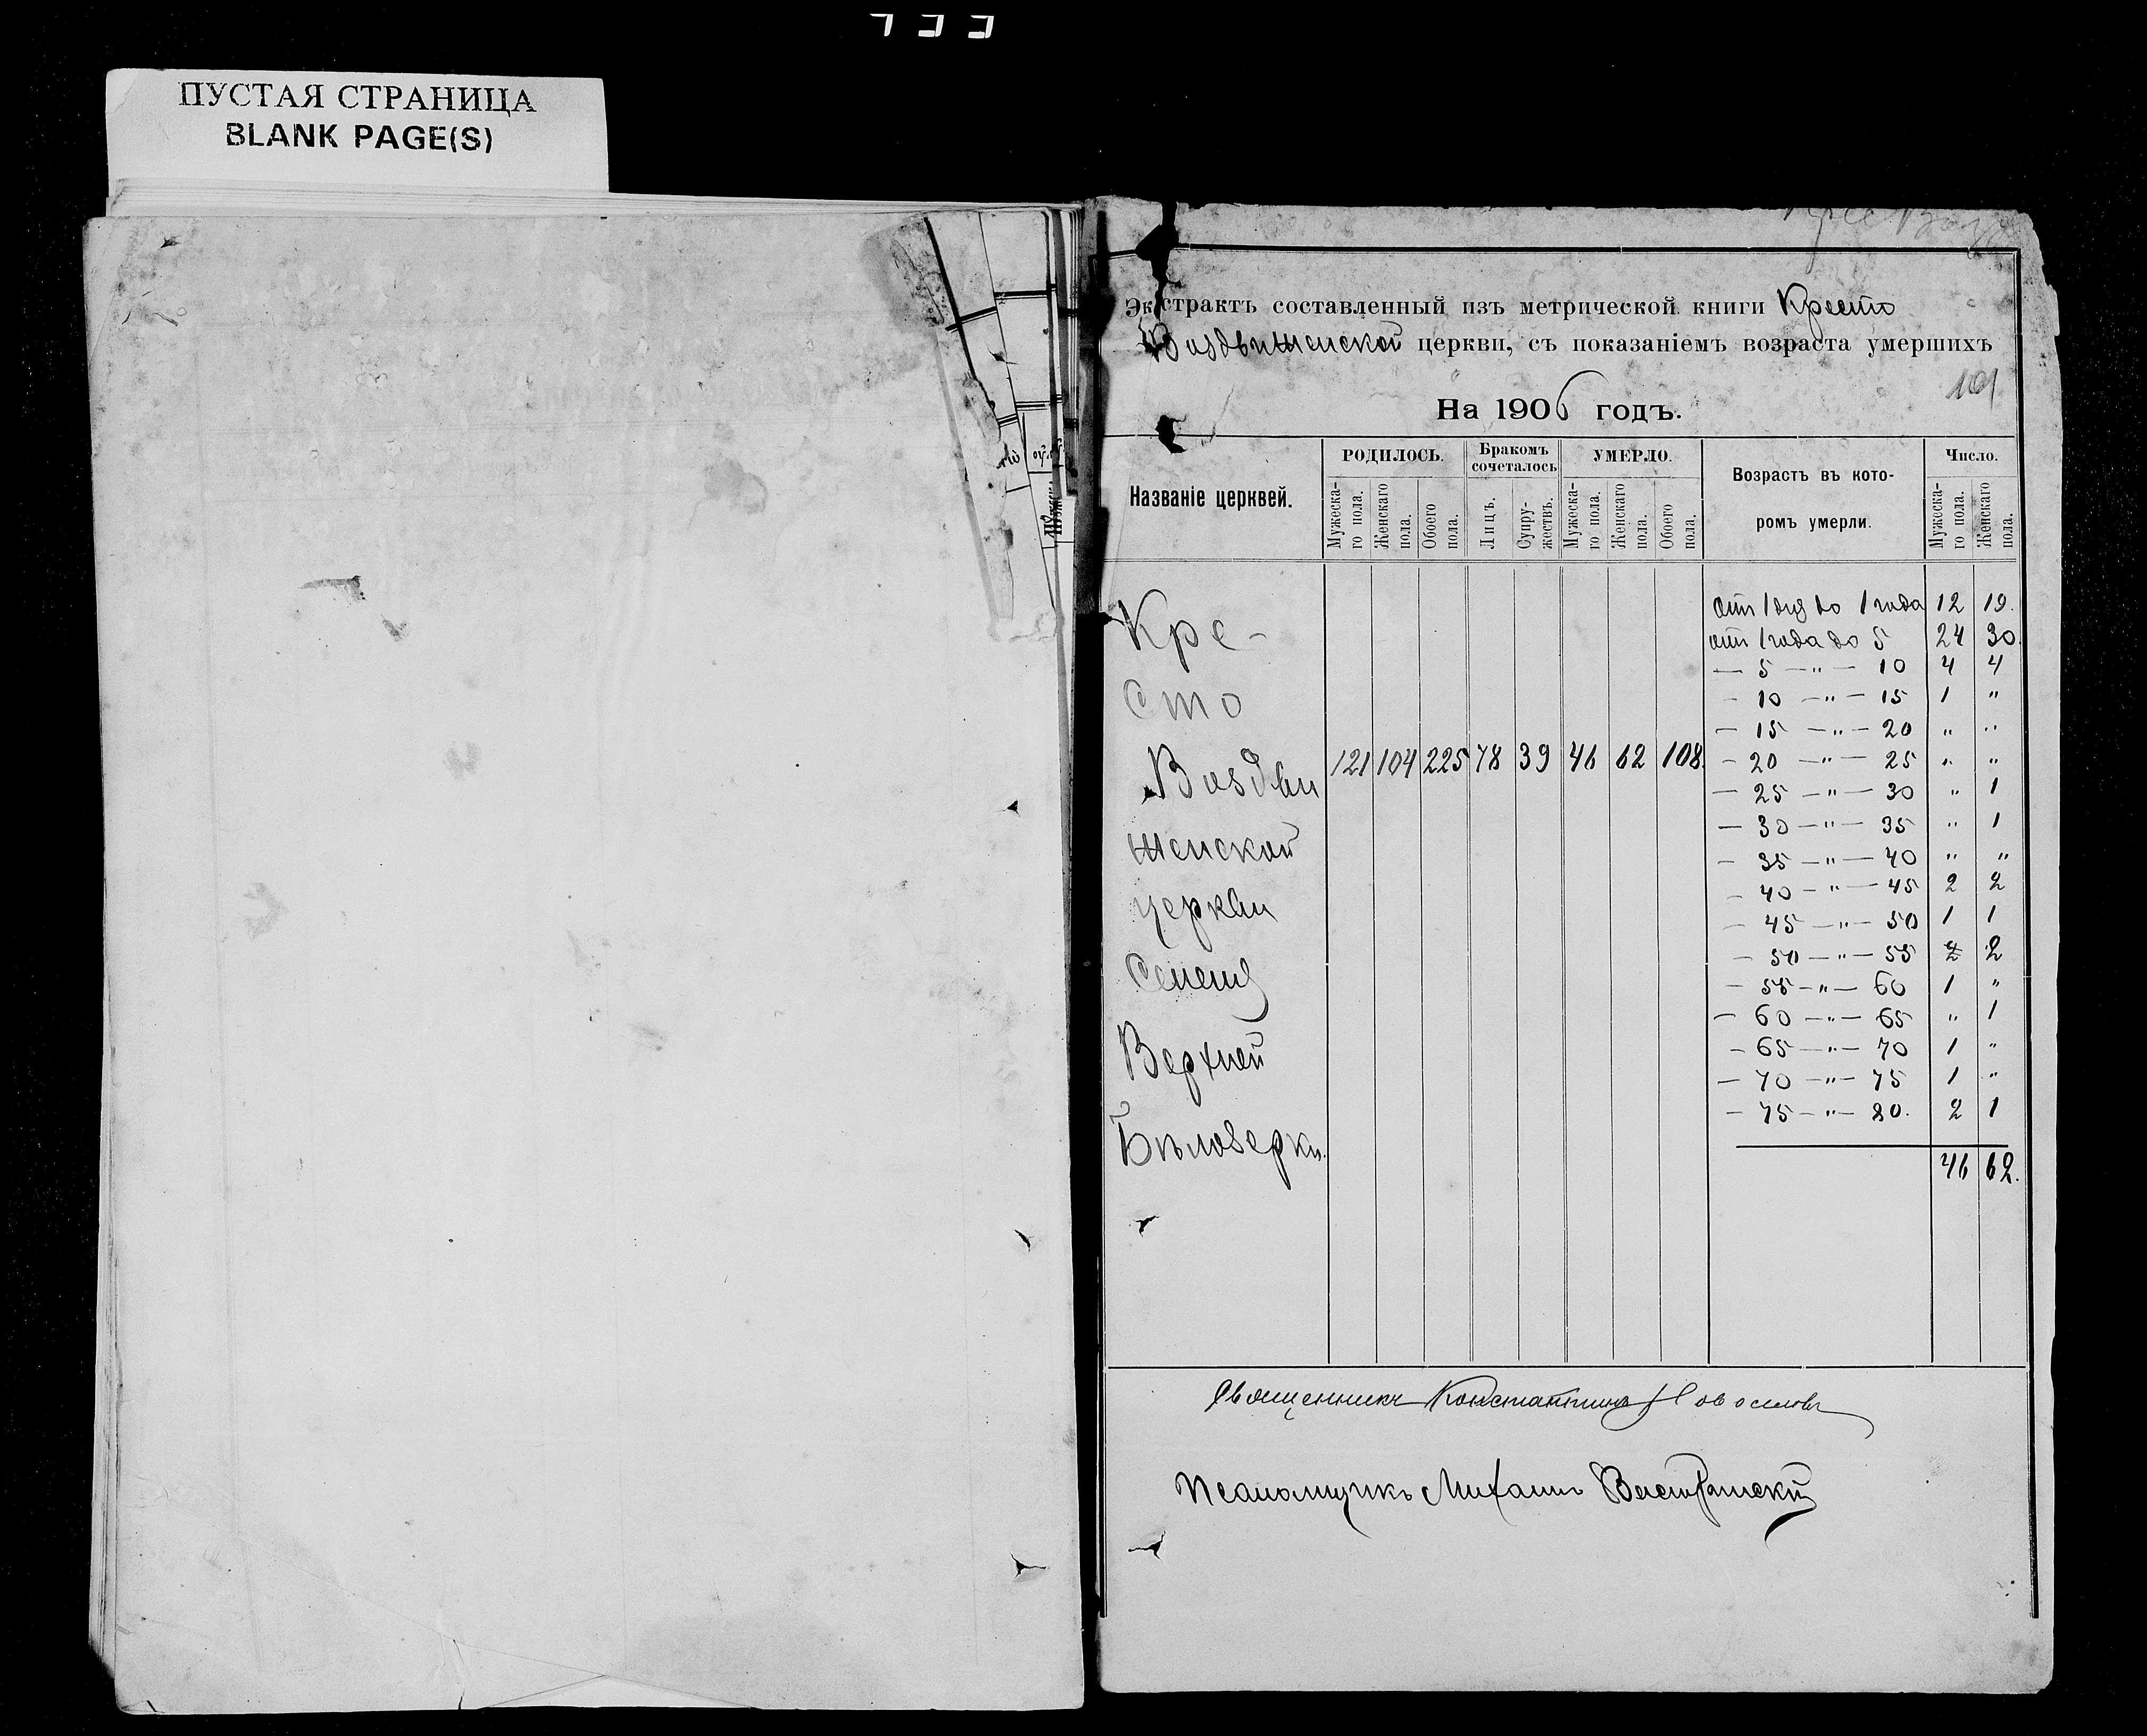 ПУСТАЯ СТРАНИЦА
BLANK PAGE(S)
Экстрактъ составленный изъ метрической книги Кресто
Воздвиженской церкви, съ показаніемъ возраста умершихъ
101
На 1906 годъ.
Названіе церквей.
РОДИЛОСЬ.
Мужеска-
го пола.
Женскаго
пола.
Обоего
пола.
Бракомъ
сочеталось
Лицъ.
Супру-
жествъ.
УМЕРЛО.
Мужеска-
го пола.
Женскаго
пола.
Обоего
пола.
Возрастъ въ кото-
ромъ умерли.
Число.
Мужеска-
го пола.
Женскаго
пола.
Кре-
сто
Воздви
женской
церкви
Селенія
Верхней
Бѣлозерки.
121 104 225 78 39 46 62 108.
отъ 1 дня до 1 года 12 19.
отъ 1 года до 5 24 30.
— 5 —"— 10 4 4
— 10 —"— 15 1 "
— 15 —"— 20 " "
— 20 —"— 25 " "
— 25 —"— 30 " 1
— 30 —"— 35 " 1
— 35 —"— 40 " "
— 40 —"— 45 2 2
— 45 —"— 50 1 1
— 50 —"— 55 2
— 55 —"— 60 1 "
— 60 —"— 65 " 1
— 65 —"— 70 1 "
— 70 —"— 75 1 "
— 75 —"— 80. 2 1
46 62.
Священникъ Константинъ
Псаломщикъ Михаилъ